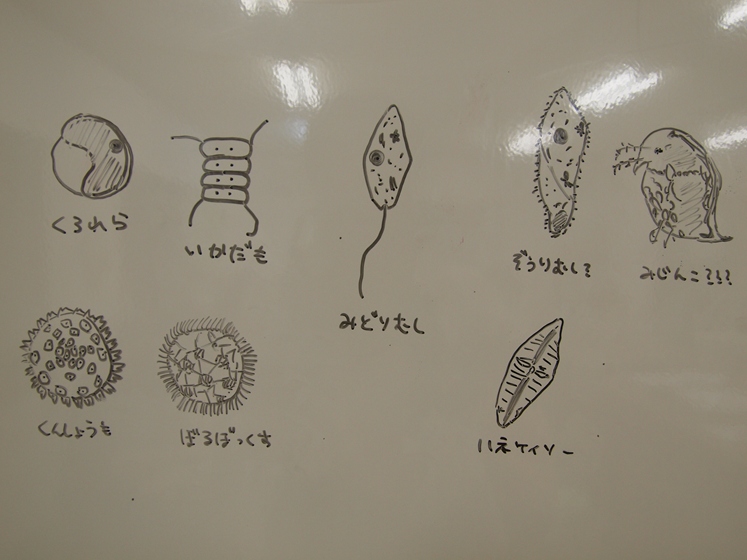 くろれら
いかだも
みどりむし
ぞうりむし?
みじんこ???
くんしょうも
ぼるぼっくす
ハネケイソー